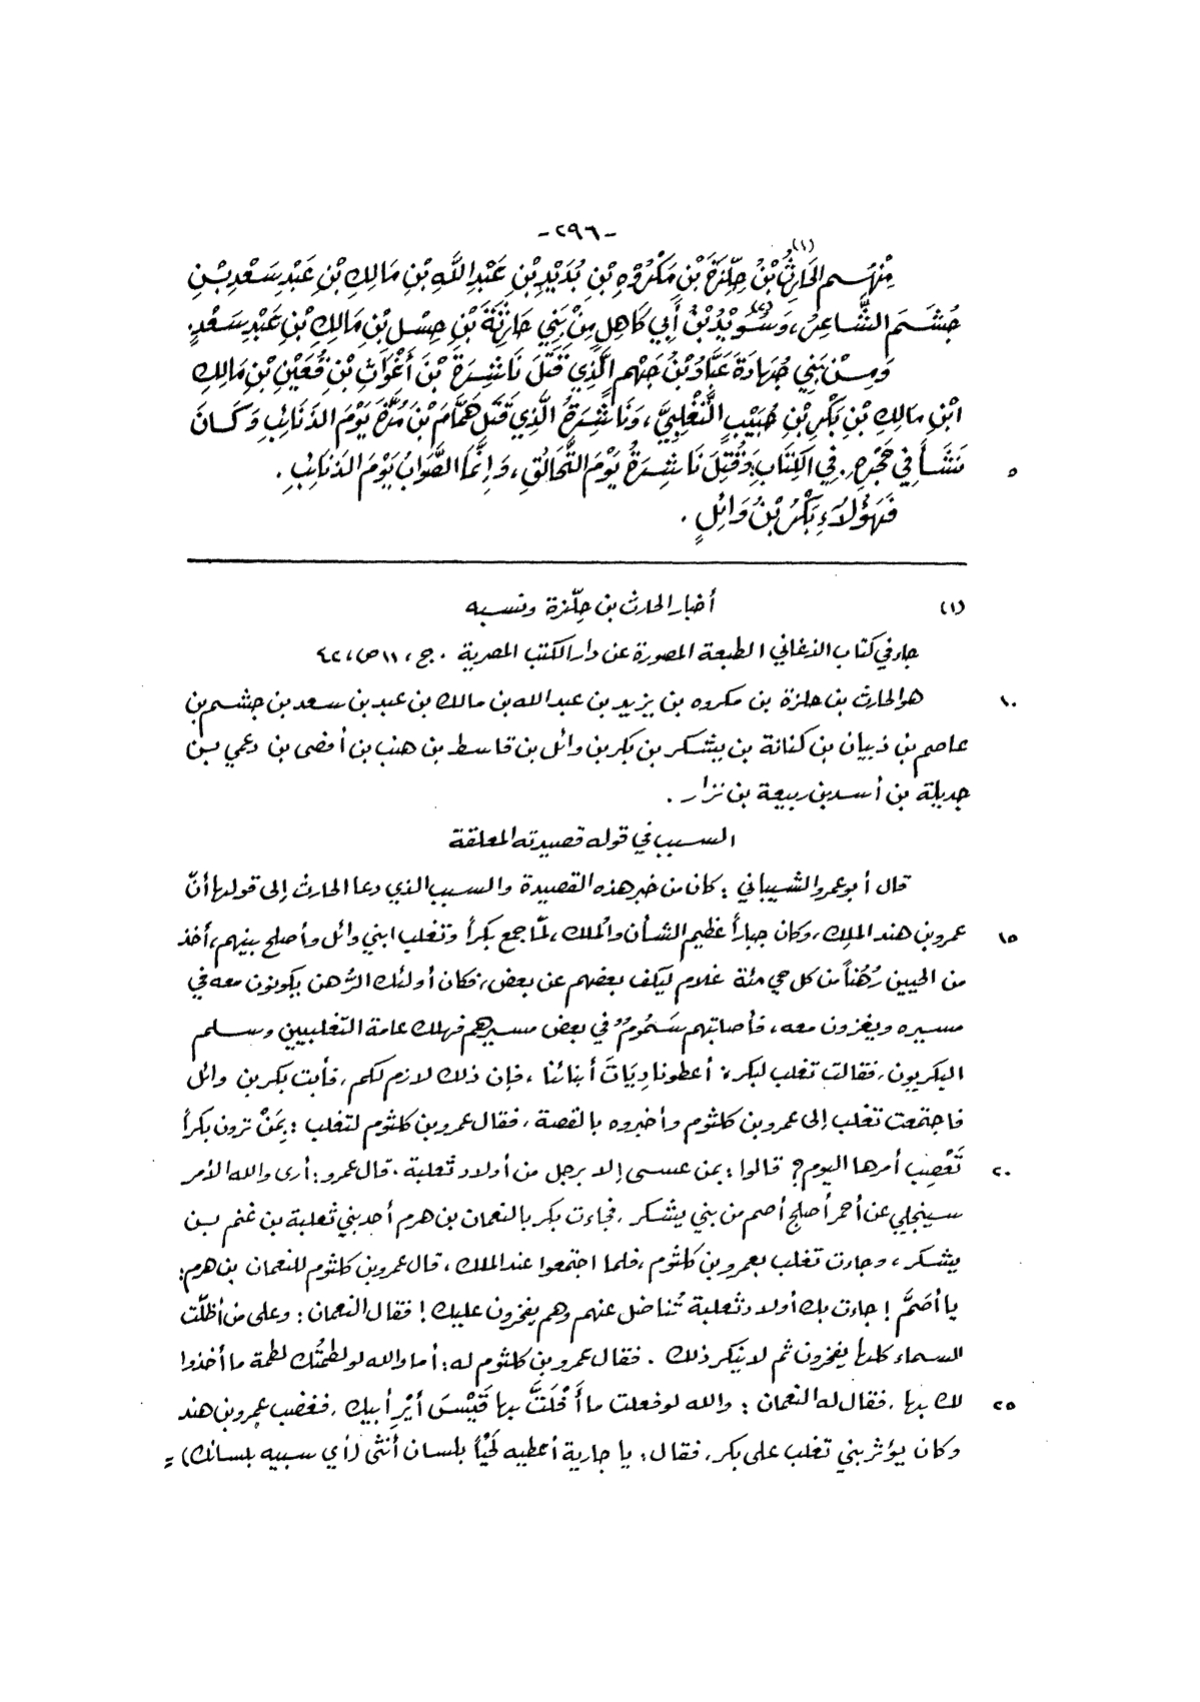 -٢٩٦-
مِنْهُم الحَارِثُ(١) بْنُ حِلِّزَةَ بْنِ مَكْرُوْهِ بْنِ بُدَيْدِ بْنِ عَبْدِ اللَّهِ بْنِ مَالِكِ بْنِ عَبْدِ سَعْدِ بْنِ
جُشَمَ الشَّاعِرُ، وَسُوَيْدُ بْنُ أَبِي كَاهِلٍ مِنْ بَنِي حَارِثَةَ بْنِ حِسْلِ بْنِ مَالِكِ بْنِ عَبْدِ سَعْدٍ.
وَمِنْ بَنِي جُهَادَةَ عَبَّادُ بْنُ جَهْمٍ الَّذِي قَتَلَ نَاشِرَةَ بْنَ أَغْوَاثِ بْنِ قُعَيْنِ بْنِ مَالِكِ
ابْنِ مَالِكِ بْنِ بَكْرِ بْنِ حُبَيْبٍ التَّغْلِبِيَّ، وَنَاشِرَةُ الَّذِي قَتَلَ هَمَّامَ بْنَ مُرَّةَ يَوْمَ الذَنَائِبِ وَكَانَ
نَشَأَ فِي حَجْرِهِ. فِي الكِتَابِ: وَقُتِلَ نَاشِرَةُ يَوْمَ التَّحَالُقِ، وَإِنَّمَا الصَّوَابُ يَوْمَ الذَنَائِبِ.
٥
فَهَؤُلاَءِ بَكْرُ بْنُ وَائِلٍ.
(١) أخبار الحارث بن حِلّزة ونسبه
جاء في كتاب الأغاني الطبعة المصورة عن دار الكتب المصرية. ج، ١١ ص، ٤٢
هو الحارث بن حلزة بن مكروه بن يزيد بن عبد الله بن مالك بن عبد بن سعد بن جشم بن
١٠
عاصم بن ذبيان بن كنانة بن يشكر بن بكر بن وائل بن قاسط بن هنب بن أفصى بن دعمي بن
جديلة بن أسد بن ربيعة بن نزار.
السبب في قوله قصيدته المعلقة
قال أبو عمرو الشيباني: كان من خبر هذه القصيدة والسبب الذي دعا الحارث إلى قولها أنّ
عمرو بن هند الملك، وكان جباراً عظيم الشأن والملك، لمّا جمع بكراً وتغلب ابني وائل وأصلح بينهم، أخذ
١٥
من الحيين رُهُناً من كل حي مئة غلام ليكف بعضهم عن بعض، فكان أولئك الرُّهن يكونون معه في
مسيره ويغزون معه، فأصابتهم سَمُومٌ في بعض مسيرهم فهلك عامة التغلبيين وسلم
البكريون، فقالت تغلب لبكر: أعطونا دِيَاتَ أبنائنا، فإن ذلك لازم لكم، فأبت بكر بن وائل
فاجتمعت تغلب إلى عمرو بن كلثوم وأخبروه بالقصة، فقال عمرو بن كلثوم لتغلب: بِمَنْ ترون بكراً
تَعْصِب أمرها اليوم؟ قالوا: بمن عسى إلا برجل من أولاد ثعلبة. قال عمرو: أرى والله الأمر
٢٠
سينجلي عن أحمر أصلج أصم من بني يشكر، فجاءت بكر بالنعمان بن هرم أحد بني ثعلبة بن غنم بن
يشكر، وجاءت تغلب بعمرو بن كلثوم، فلما اجتمعوا عند الملك، قال عمرو بن كلثوم للنعمان بن هرم:
يا أصَمُّ! جاءت بك أولاد ثعلبة تُناضل عنهم وهم يفخرون عليك! فقال النعمان: وعلى من أظلّت
السماء كلها يفخرون ثم لا ينكر ذلك. فقال عمرو بن كلثوم له: أما والله لو لطمتُك لطمة ما أخذوا
لك بها، فقال له النعمان: والله لو فعلت ما أَفْلَتَّ بها قَيْسَ أَيْرِ أبيك، فغضب عمرو بن هند
٢٥
وكان يؤثر بني تغلب على بكر، فقال: يا جارية أعطيه لَحْياً بلسان أنثى (أي سبيه بلسانك) =